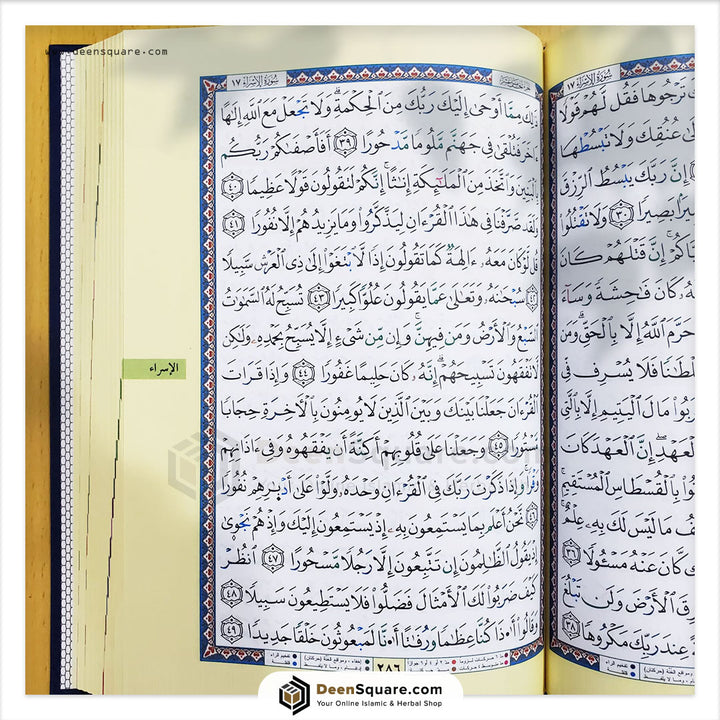 www.deensquare.com
سُورَةُ الإِسْرَاءِ ١٧
ذَٰلِكَ مِمَّآ أَوْحَىٰٓ إِلَيْكَ رَبُّكَ مِنَ ٱلْحِكْمَةِ ۗ وَلَا تَجْعَلْ مَعَ ٱللَّهِ إِلَٰهًا
ءَاخَرَ فَتُلْقَىٰ فِى جَهَنَّمَ مَلُومًا مَّدْحُورًا ٣٩ أَفَأَصْفَىٰكُمْ رَبُّكُم
بِٱلْبَنِينَ وَٱتَّخَذَ مِنَ ٱلْمَلَٰٓئِكَةِ إِنَٰثًا ۚ إِنَّكُمْ لَتَقُولُونَ قَوْلًا عَظِيمًا ٤٠
وَلَقَدْ صَرَّفْنَا فِى هَٰذَا ٱلْقُرْءَانِ لِيَذَّكَّرُوا۟ وَمَا يَزِيدُهُمْ إِلَّا نُفُورًا ٤١
قُل لَّوْ كَانَ مَعَهُۥٓ ءَالِهَةٌ كَمَا يَقُولُونَ إِذًا لَّٱبْتَغَوْا۟ إِلَىٰ ذِى ٱلْعَرْشِ سَبِيلًا
٤٢ سُبْحَٰنَهُۥ وَتَعَٰلَىٰ عَمَّا يَقُولُونَ عُلُوًّا كَبِيرًا ٤٣ تُسَبِّحُ لَهُ ٱلسَّمَٰوَٰتُ
ٱلسَّبْعُ وَٱلْأَرْضُ وَمَن فِيهِنَّ ۚ وَإِن مِّن شَىْءٍ إِلَّا يُسَبِّحُ بِحَمْدِهِۦ وَلَٰكِن
لَّا تَفْقَهُونَ تَسْبِيحَهُمْ ۗ إِنَّهُۥ كَانَ حَلِيمًا غَفُورًا ٤٤ وَإِذَا قَرَأْتَ
ٱلْقُرْءَانَ جَعَلْنَا بَيْنَكَ وَبَيْنَ ٱلَّذِينَ لَا يُؤْمِنُونَ بِٱلْءَاخِرَةِ حِجَابًا
مَّسْتُورًا ٤٥ وَجَعَلْنَا عَلَىٰ قُلُوبِهِمْ أَكِنَّةً أَن يَفْقَهُوهُ وَفِىٓ ءَاذَانِهِمْ
وَقْرًا ۚ وَإِذَا ذَكَرْتَ رَبَّكَ فِى ٱلْقُرْءَانِ وَحْدَهُۥ وَلَّوْا۟ عَلَىٰٓ أَدْبَٰرِهِمْ نُفُورًا
٤٦ نَّحْنُ أَعْلَمُ بِمَا يَسْتَمِعُونَ بِهِۦٓ إِذْ يَسْتَمِعُونَ إِلَيْكَ وَإِذْ هُمْ نَجْوَىٰٓ
إِذْ يَقُولُ ٱلظَّٰلِمُونَ إِن تَتَّبِعُونَ إِلَّا رَجُلًا مَّسْحُورًا ٤٧ ٱنظُرْ
كَيْفَ ضَرَبُوا۟ لَكَ ٱلْأَمْثَالَ فَضَلُّوا۟ فَلَا يَسْتَطِيعُونَ سَبِيلًا ٤٨
وَقَالُوٓا۟ أَءِذَا كُنَّا عِظَٰمًا وَرُفَٰتًا أَءِنَّا لَمَبْعُوثُونَ خَلْقًا جَدِيدًا ٤٩
٢٨٦
الإسراء
سُورَةُ الإِسْرَاءِ ١٧
تَرْجُوهَا فَقُل لَّهُمْ قَوْلًا
إِلَىٰ عُنُقِكَ وَلَا تَبْسُطْهَا
إِنَّ رَبَّكَ يَبْسُطُ ٱلرِّزْقَ
بَصِيرًا ٣٠ وَلَا تَقْتُلُوٓا۟
إِنَّ قَتْلَهُمْ كَانَ
كَانَ فَٰحِشَةً وَسَآءَ
حَرَّمَ ٱللَّهُ إِلَّا بِٱلْحَقِّ ۗ وَمَن
فَلَا يُسْرِف فِّى
مَالَ ٱلْيَتِيمِ إِلَّا بِٱلَّتِى
إِنَّ ٱلْعَهْدَ كَانَ
بِٱلْقِسْطَاسِ ٱلْمُسْتَقِيمِ
مَا لَيْسَ لَكَ بِهِۦ عِلْمٌ
كَانَ عَنْهُ مَسْـُٔولًا ٣٦
ٱلْأَرْضَ وَلَن تَبْلُغَ
عِندَ رَبِّكَ مَكْرُوهًا ٣٨
DeenSquare.com
DeenSquare.com
Your Online Islamic & Herbal Shop